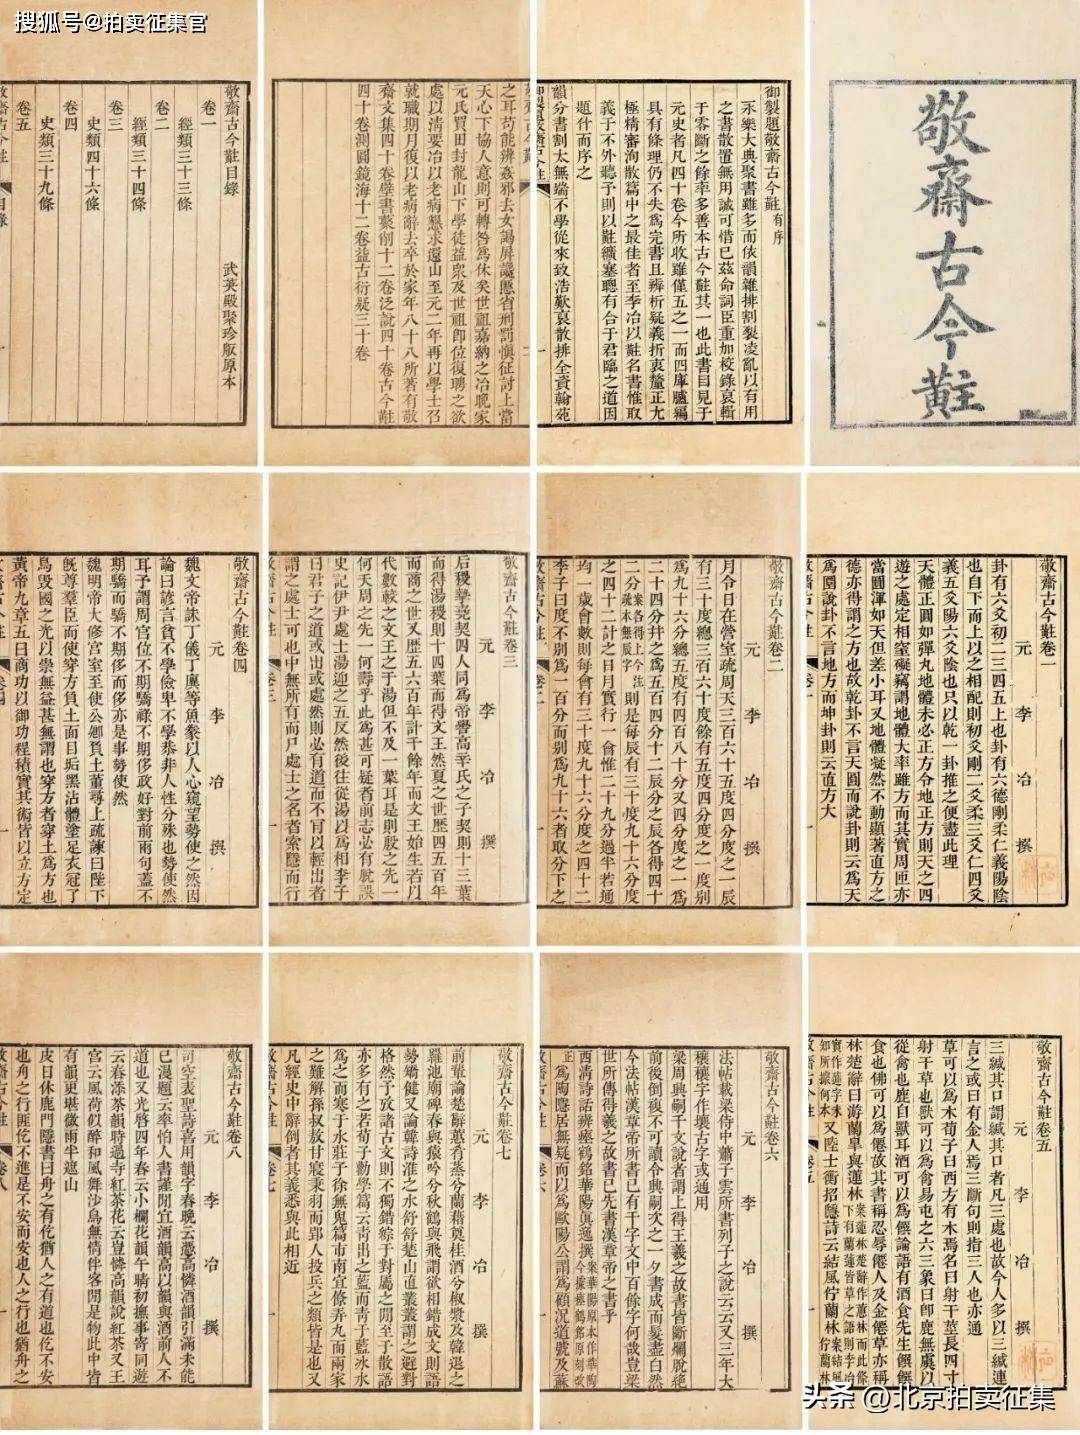 搜狐号@拍卖征集官
敬齋古今黈
御製題敬齋古今黈有序
永樂大典聚書雖多而依韻雜排割裂凌亂以有用
之書散置無用誠可惜已茲命詞臣重加校錄裒輯
于零斷之餘幸多善本古今黈其一也此書目見于
元史者凡四十卷今所收雖僅五之一而四庫臚編
具有條理仍不失為完書且辨析疑義折衷釐正尤
極精審洵散篇中之最佳者至李冶以黈名書惟取
義于不外聽予則以黈纊塞聰有合于君臨之道因
題什而序之
韻分書割太無端不學從來致浩歎裒散排全資翰苑
之耳苟能辨姦邪去女謁屏讒慝省刑罰慎征討上當
天心下協人意則可轉咎為休矣世祖嘉納之冶晚家
元氏買田封龍山下學徒益眾及世祖即位復聘之欲
處以清要冶以老病懇求還山至元二年再以學士召
就職期月復以老病辭去卒於家年八十八所著有敬
齋文集四十卷壁書藂削十二卷泛說四十卷古今黈
四十卷測圓鏡海十二卷益古衍疑三十卷
敬齋古今黈目錄
武英殿聚珍版原本
卷一
經類三十三條
卷二
經類三十四條
卷三
史類四十六條
卷四
史類三十九條
卷五
敬齋古今黈卷一
元 李 冶 撰
卦有六爻初二三四五上也卦有六德剛柔仁義陽陰
也自下而上以之相配則初爻剛二爻柔三爻仁四爻
義五爻陽六爻陰也只以乾一卦推之便盡此理
天體正圓如彈丸地體未必正方令地正方則天之四
遊之處定相窒礙竊謂地體大率雖方而其實周匝亦
當圓渾如天但差小耳又地體凝然不動顯著直方之
德亦得謂之方也故乾卦不言天圓而說卦則云為天
為圜說卦不言地方而坤卦則云直方大
敬齋古今黈卷二
元 李 冶 撰
月令日在營室疏周天三百六十五度四分度之一辰
有三十度總三百六十度餘有五度四分度之一度別
為九十六分總五度有四百八十分又四分度之一為
二十四分幷之為五百四分十二辰分之辰各得四十
二分則是每辰有三十度九十六分度
之四十二計之日月實行一會惟二十九分過半若通
均一歲會數則每會有三十度九十六分度之四十二
李子曰度不別為一百分而別為九十六者取分下之
敬齋古今黈卷三
元 李 冶 撰
后稷摯堯契四人同為帝嚳高辛氏之子契則十三葉
而得湯稷則十四葉而得文王然夏之世歷四五百年
而商之世又歷五六百年計千餘年而文王始生若以
代數較之文王之于湯但不及一葉耳是則殷之先一
何夭周之先一何壽乎此為甚可疑者前志必有脫誤
史記伊尹處士湯迎之五反然後往從湯以為相李子
曰君子之道或出或處然則必有道而不肯以輕出者
謂之處士可也中無所有而尸處士之名者索隱而行
敬齋古今黈卷四
元 李 冶 撰
魏文帝誅丁儀丁廙等魚豢以人心窺望勢使之然因
論曰諺言貧不學儉卑不學恭非人性分殊也勢使然
耳予謂周官位不期驕祿不期侈政好對前兩句蓋不
期驕而驕不期侈而侈亦是事勢使然
魏明帝大修宮室至使公卿負土董尋上疏諫曰陛下
既尊羣臣而使穿方負土面目垢黑沾體塗足衣冠了
鳥毀國之光以崇無益甚無謂也穿方者穿土為方也
黃帝九章五曰商功以御功程積實其術皆以立方定
敬齋古今黈卷五
元 李 冶 撰
三緘其口謂緘其口者凡三處也故今人多以三緘連
言之或曰有金人焉三斷句則指三人也亦通
草可以為木荀子曰西方有木焉名曰射干莖長四寸
射干草也獸可以為禽易屯之六三象曰即鹿無虞以
從禽也鹿自獸耳酒可以為饌論語有酒食先生饌
食也佛可以為僊故其書稱忍辱僊人及金僊草亦稱
林楚辭曰游蘭皐與蕙林
又陸士衡招隱詩云結風佇蘭林
敬齋古今黈卷六
元 李 冶 撰
法帖載梁侍中蕭子雲所書列子之說云云又三年大
穰穰字作壤古字或通用
梁周興嗣千文說者謂上得王羲之故書皆斷爛脫絕
前後倒複不可讀令興嗣次之一夕書成而髮盡白然
今法帖漢章帝所書已有千字文中百餘字何哉豈梁
世所傳得羲之故書已先書漢章帝之書乎
西清詩話辨瘞鶴銘華陽眞逸撰
為陶隱居無疑而以為歐陽公謂為顧況道號及蘇
敬齋古今黈卷七
元 李 冶 撰
前輩論楚辭蕙肴蒸兮蘭藉奠桂酒兮椒漿及韓退之
羅池廟碑春與猿吟兮秋鶴與飛謂欲相錯成文則語
勢矯健又論韓詩淮之水舒舒楚山直叢叢謂之避對
格然予攷諸古文則不獨錯綜于對屬之間至于散語
亦多有之若荀子勸學篇云青出之藍而靑于藍冰水
為之而寒于水莊子徐無鬼篇市南宜僚弄丸而兩家
之難解孫叔敖甘寢秉羽而郢人投兵之類皆是也又
凡經史中辭倒者其義悉與此相近
敬齋古今黈卷八
元 李 冶 撰
司空表聖詩喜用韻字春晚云憑高憐酒韻引滿未能
已漫題云率怕人書謹閒宜酒韻高以韻與酒前人不
道也又光啓四年春云小欄花韻午晴初撫事寄同遊
云春添茶韻時過寺紅茶花云豈憐高韻說紅茶又王
官云風荷似醉和風舞沙鳥無情伴客閒是物此中皆
有韻更堪微雨半遮山
皮日休鹿門隱書曰舟之有仡猶人之有道也仡不安
也舟之行匪仡不進是不安而安也人之行也猶舟之
头条 @北京拍卖征集